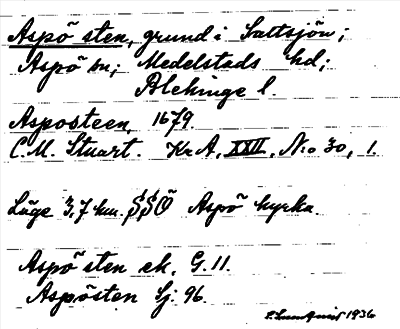 Aspö sten, grund i Saltsjön;
Aspö sn; Medelstads hd;
Blekinge l.
Asposteen, 1679.
C.M. Stuart. Kr A, XXII, No 30, 1.
Läge 3,7 km. SSÖ Aspö kyrka.
Aspö sten ek. G. 11.
Aspösten Sj. 96.
1936